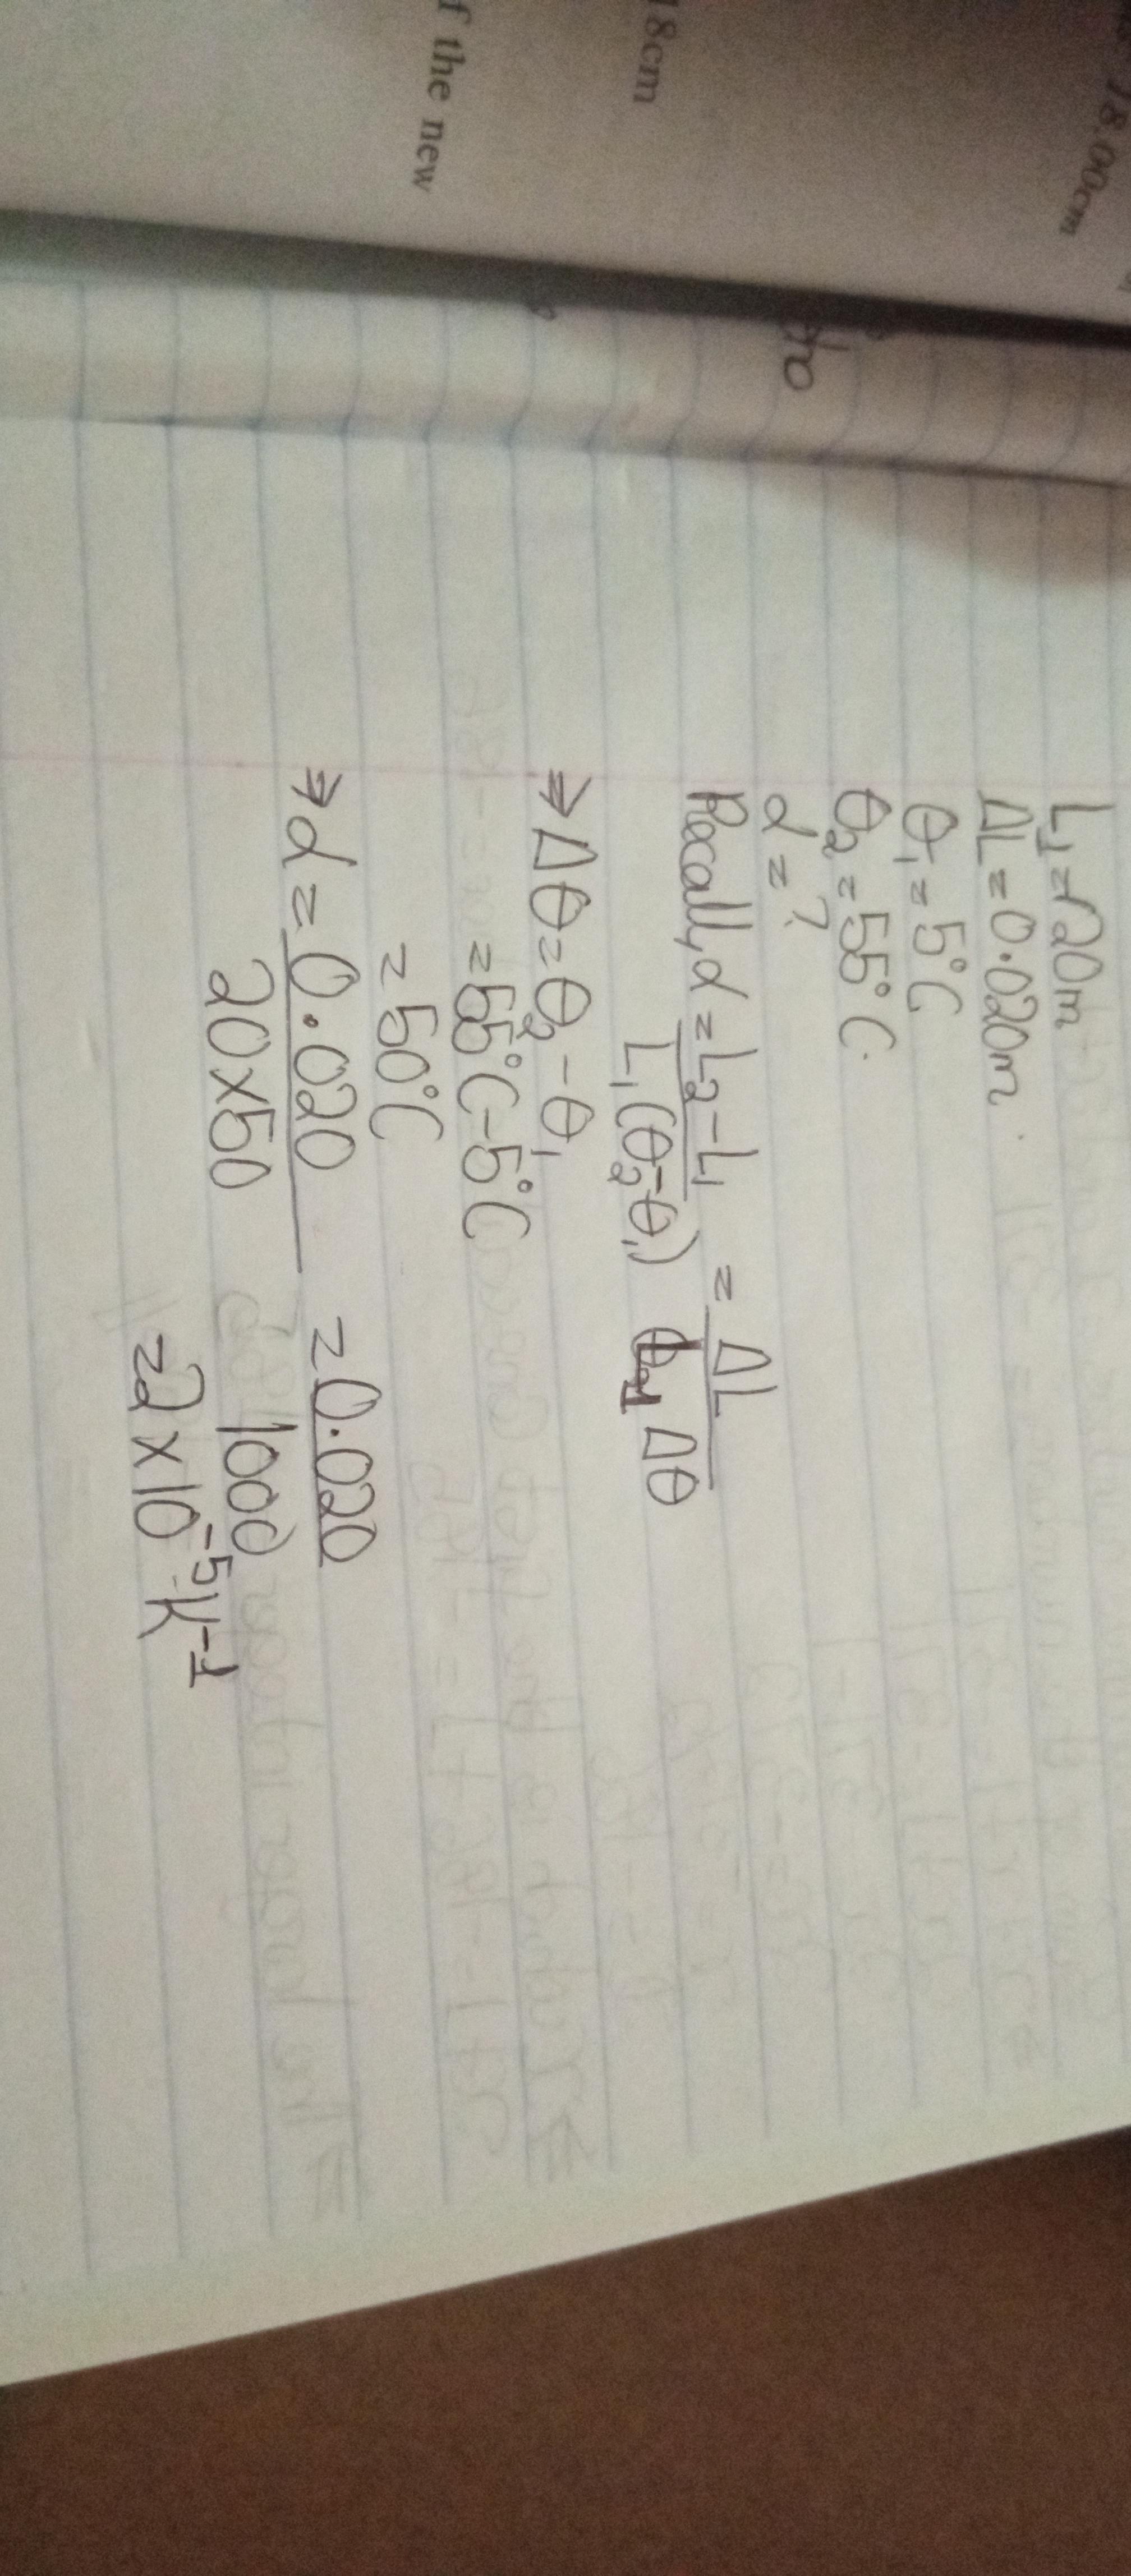 18.00cm
18cm
f the new
L₁ = 20m
ΔL = 0.020m
θ₁ = 5°C
θ₂ = 55°C.
α = ?
Recall, α = L₂ - L₁ / L₁(θ₂-θ₁) = ΔL / L₁ Δθ
⇒ Δθ = θ₂ - θ₁
= 55°C - 5°C
= 50°C
⇒ α = 0.020 / 20 x 50 = 0.020 / 1000
= 2 x 10⁻⁵ K⁻¹